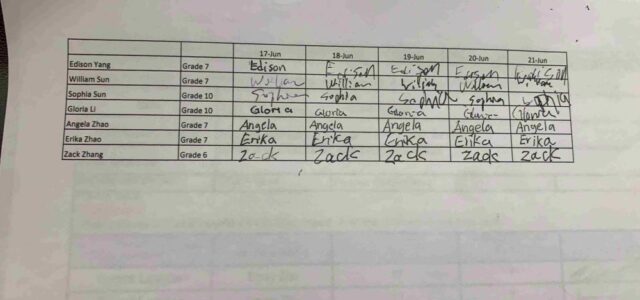 17-Jun 18-Jun 19-Jun 20-Jun 21-Jun
Edison Yang Grade 7 Edison Edison Edison Edison
William Sun Grade 7 William William William William
Sophia Sun Grade 10 Sophia Sophia Sophia Sophia
Gloria Li Grade 10 Gloria Gloria Gloria Gloria
Angela Zhao Grade 7 Angela Angela Angela Angela Angela
Erika Zhao Grade 7 Erika Erika Erika Erika Erika
Zack Zhang Grade 6 Zack Zack Zack Zack Zack